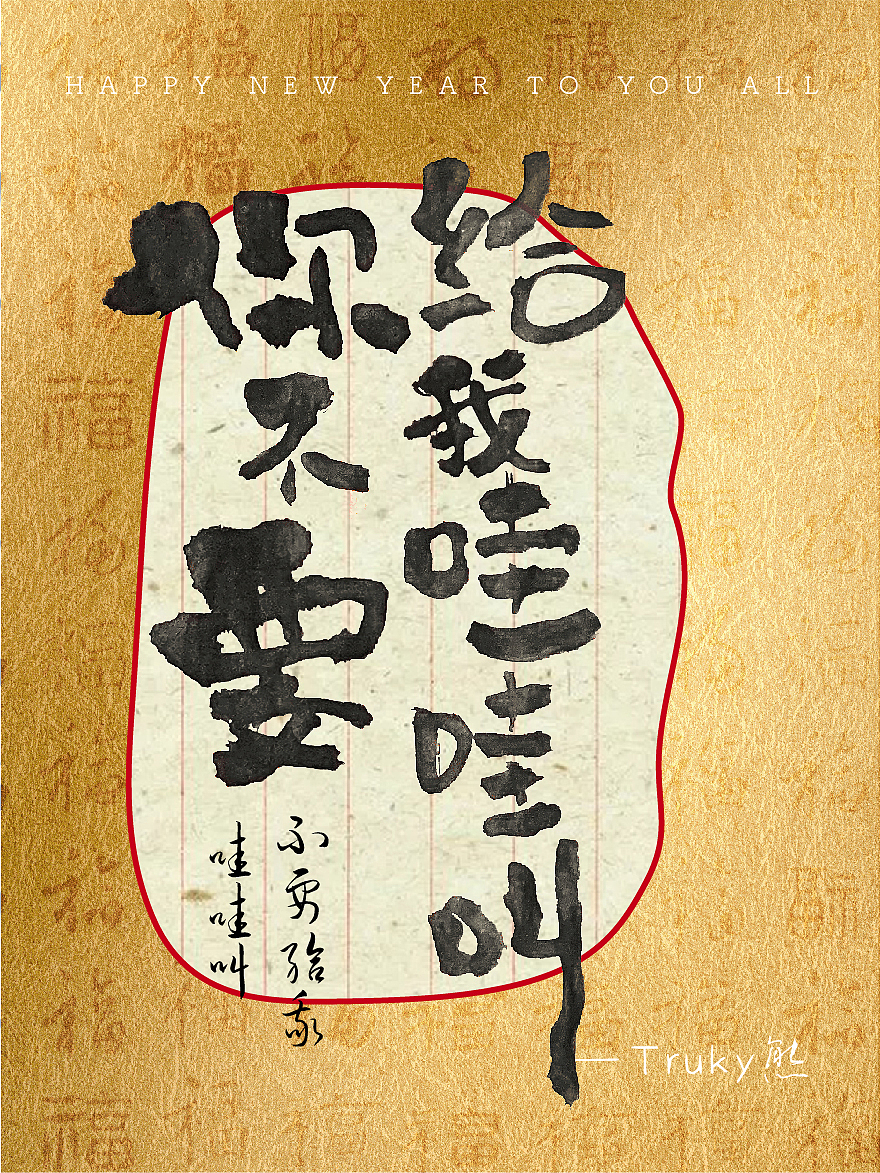 HAPPY NEW YEAR TO YOU ALL
你不要
给我哇哇叫
不要给我
哇哇叫
— Truky熊